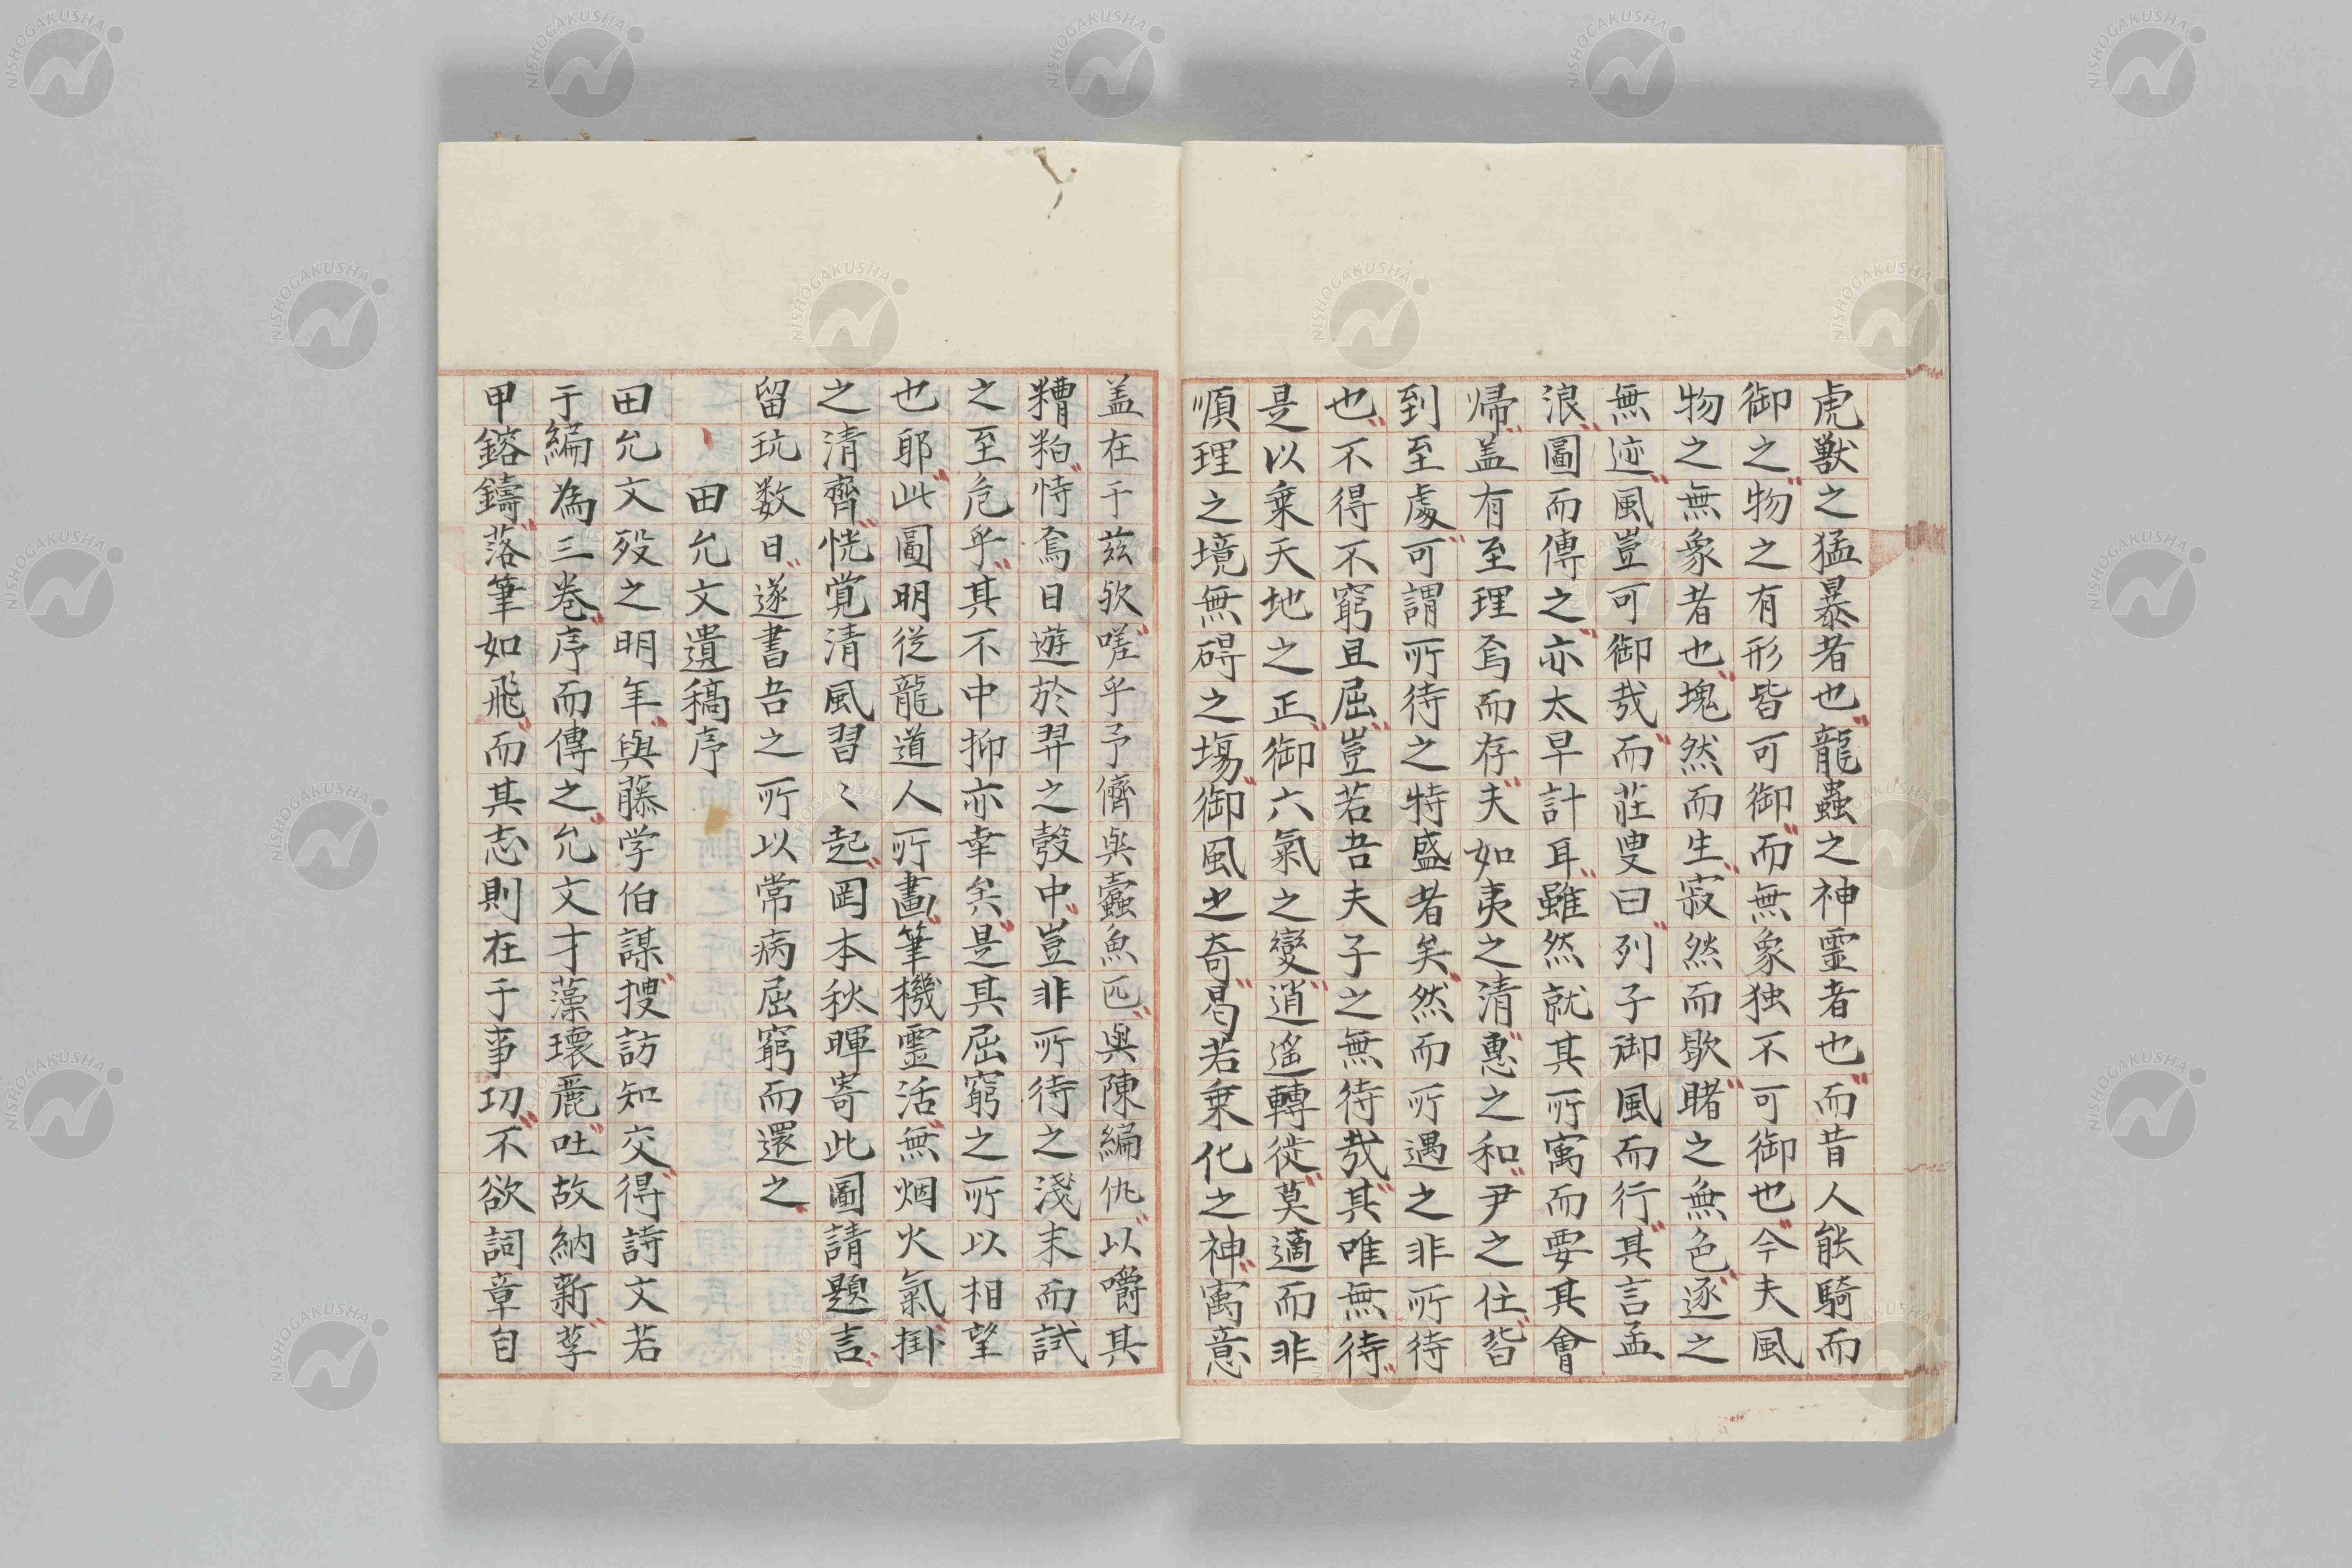 虎獣之猛暴者也龍蟲之神霊者也而昔人能騎而
御之物之有形皆可御而無象独不可御也今夫風
物之無象者也塊然而生寂然而歇睹之無色逐之
無迹風豈可御哉而莊叟曰列子御風而行其言孟
浪圖而傳之亦太早計耳雖然就其所寓而要其會
帰盖有至理焉而存夫如夷之清惠之和尹之任皆
到至處可謂所待之特盛者矣然而所遇之非所待
也不得不窮且屈豈若吾夫子之無待哉其唯無待
是以乗天地之正御六氣之變逍遥轉徙莫適而非
順理之境無碍之塲御風之奇曷若乗化之神寓意
盖在于茲欤嗟乎予儕與蠹魚匹與陳編仇以嚼其
糟粕恃焉日遊於羿之彀中豈非所待之淺末而試
之至危乎其不中抑亦幸矣是其屈窮之所以相望
也耶此圖明従龍道人所畵筆機霊活無烟火氣掛
之清齊恍覚清風習〻起岡本秋暉寄此圖請題言
留玩数日遂書吾之所以常病屈窮而還之
田允文遺稿序
田允文歿之明年與藤学伯謀捜訪知交得詩文若
于編為三巻序而傳之允文才藻瓌麗吐故納新莩
甲鎔鑄落筆如飛而其志則在于事功不欲詞章自
NISHOGAKUSHA